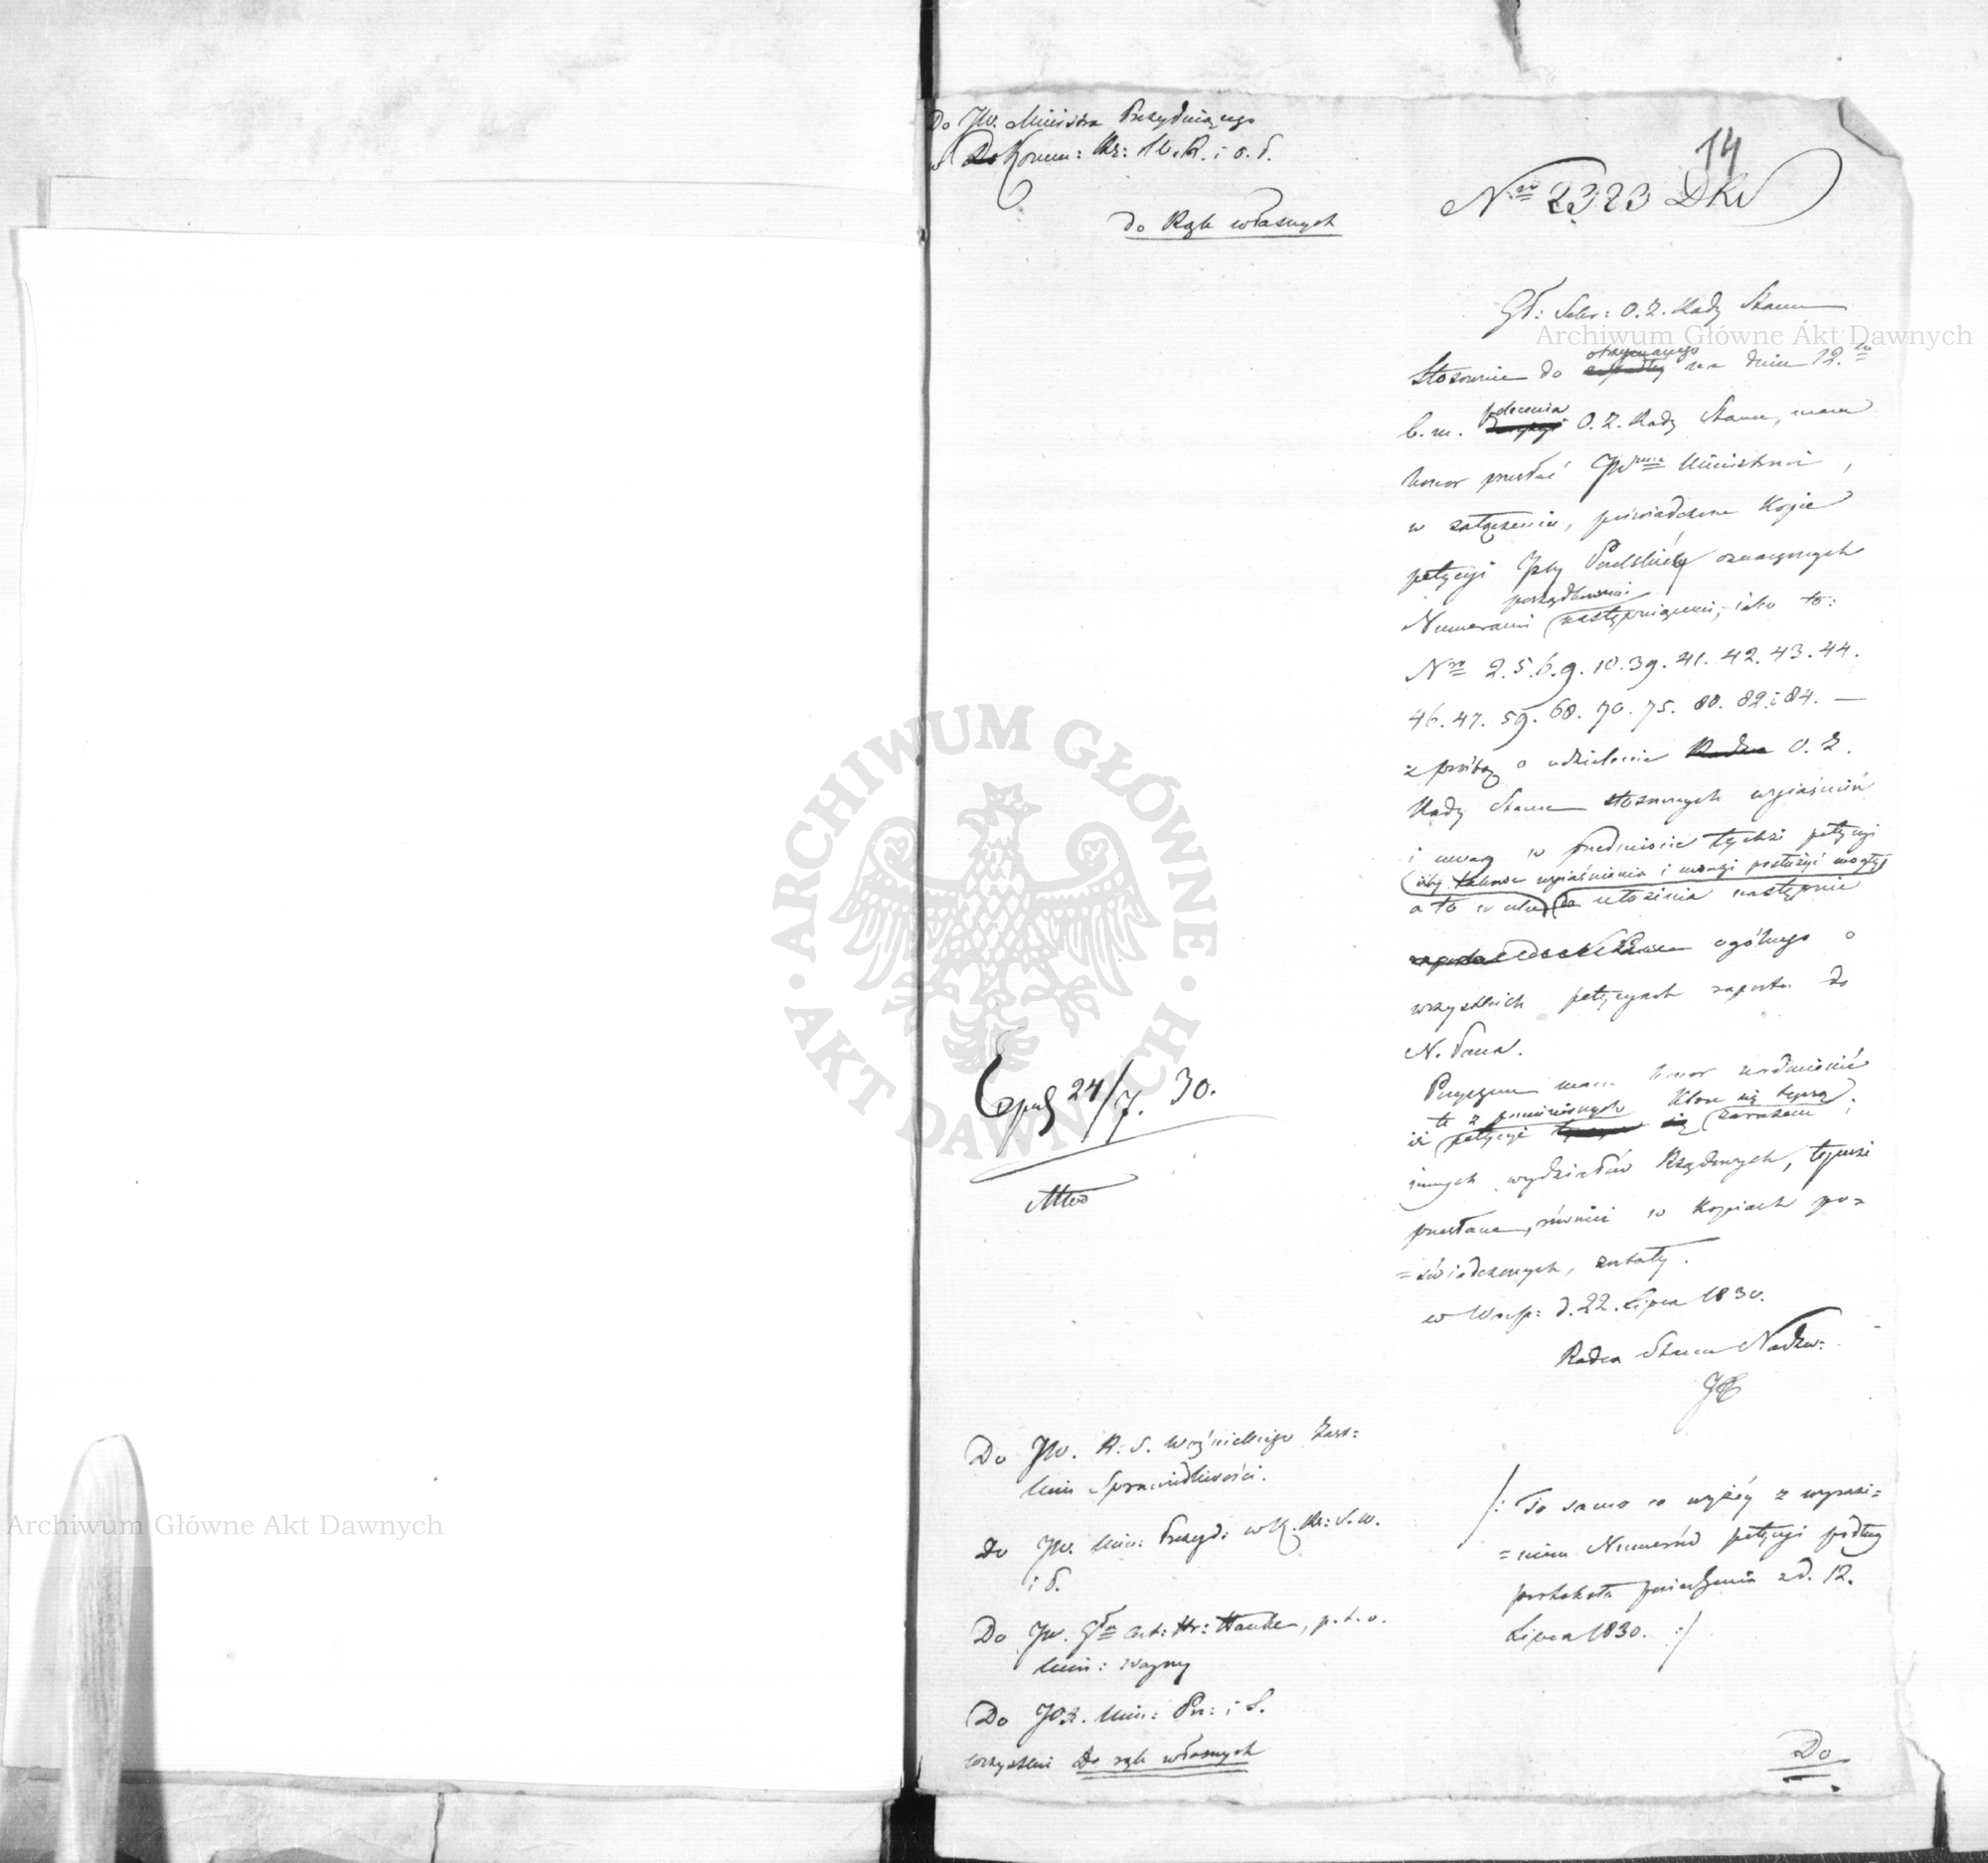 Do JW. Ministra Prezyduiącego
w Komm: Rz: W. R. i O. P.
do Rąk własnych
14
Nro 2323 DKW
Gł: Sekr: O. Z. Rady Stanu
Stosownie do otrzymanego na dniu 12.
b. m. polecenia O. Z. Rady Stanu, mam
honor przesłać JWmu Ministrowi,
w załączeniu, poświadczone Kopie
petycyi Izby Poselskiéy oznaczonych
porządkowemi
Numerami następuiącemi, iako to:
Nro 2. 5. 6. 9. 10. 39. 41. 42. 43. 44.
46. 47. 59. 68. 70. 75. 80. 82. i 84. —
z prośbą o udzielenie O. Z.
Rady Stanu stosownych wyiaśnień
i uwag w przedmiocie tychże petycyi
iżby takowe wyiaśnienia i uwagi posłużyć mogły
a to w celu do ułożenia następnie
ogólnego o
wszystkich petycyach raportu do
N. Pana.
Przyczem mam honor nadmienić
te z pomienionych które się tyczą
iż petycye zarazem
innych wydziałów Rządowych, tymże
przesłane, również w Kopiach po=
=świadczonych, zostały.
w Warsz: d. 22. Lipca 1830.
Radca Stanu Nadzw:
Exped 24/7. 30.
Do JW. R. S. Woźnickiego Zast:
Min Sprawiedliwości.
Do JW. Min: Prezyd: w K. Rz: S. W.
i P.
Do JW. Gła Art: Hr: Hauke, p. t. o.
Min: Woyny
Do JOX. Min: Prz: i S.
wszystkim Do rąk własnych
/: To samo co wyżéy z wyrazi=
=niem Numerów petycyi podług
protokołu posiedzenia z d. 12.
Lipca 1830. :/
Do
Archiwum Główne Akt Dawnych
Archiwum Główne Akt Dawnych
ARCHIWUM GŁÓWNE · AKT DAWNYCH ·